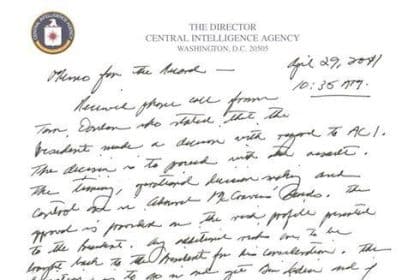 THE DIRECTOR
CENTRAL INTELLIGENCE AGENCY
WASHINGTON, D.C. 20505
April 29, 2011
10:35 AM.
Memo for the Record —
Received phone call from
Tom Donilon who stated that the
President made a decision with regard to AC1.
The decision is to proceed with the assault.
The timing, operational decision making and
control are in Admiral McRaven's hands. The
approval is provided on the risk profile presented
to the President. Any additional risks are to be
brought back to the President for his consideration. The
is to go in and get bin Laden and if